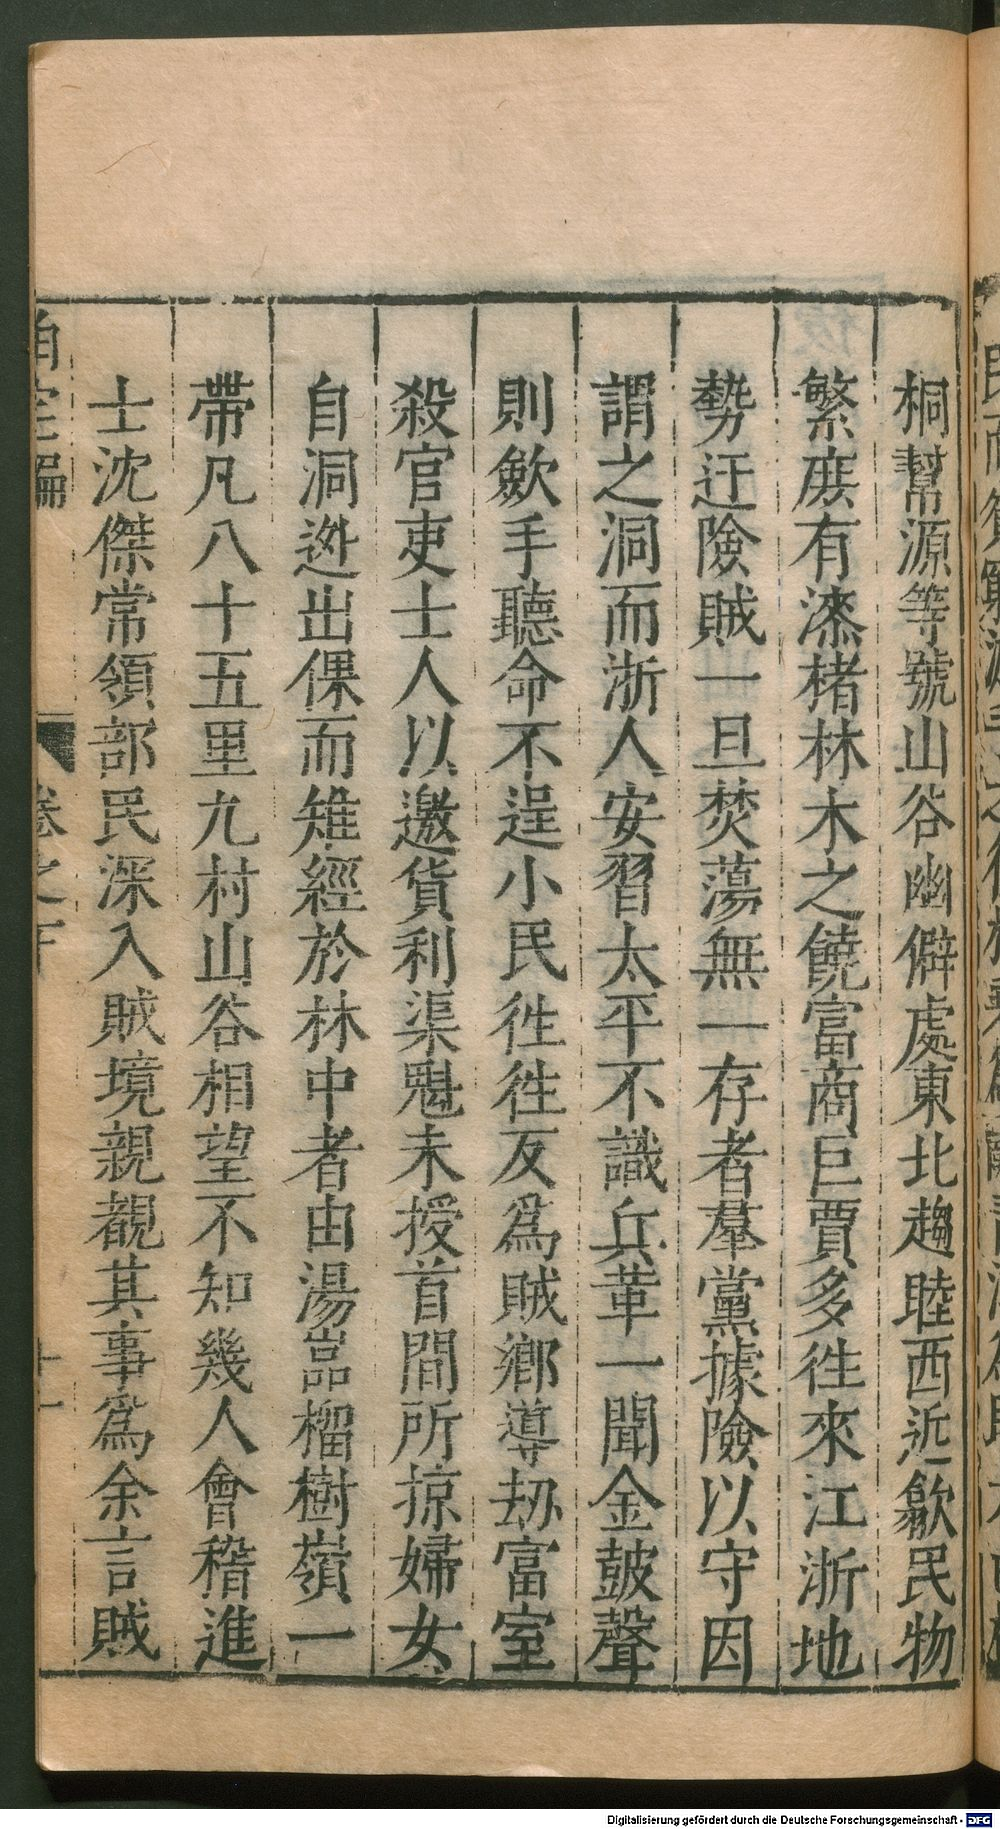 桐幫源等號山谷幽僻處東北趨睦西近歙民物
繁庻有漆楮林木之饒富商巨賈多徃來江浙地
勢迂險賊一旦焚蕩無一存者羣黨據險以守因
謂之洞而浙人安習太平不識兵革一聞金鼓聲
則歛手聽命不逞小民徃徃反爲賊鄉導刼富室
殺官吏士人以邀貨利渠魁未授首間所掠婦女
自洞逃出倮而雉經於林中者由湯嵓榴樹嶺一
帶凡八十五里九村山谷相望不知幾人會稽進
士沈傑常領部民深入賊境親覩其事爲余言賊
泊宅編 卷之下 十一
Digitalisierung gefördert durch die Deutsche Forschungsgemeinschaft - DFG